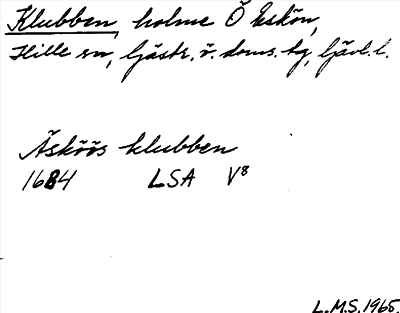 Klubben, holme Ö Eskön,
Hille sn, Gästr. ö. doms. tg, Gävl. l.
Äsköös klubben
1684 LSA V8
L.M.S. 1965.